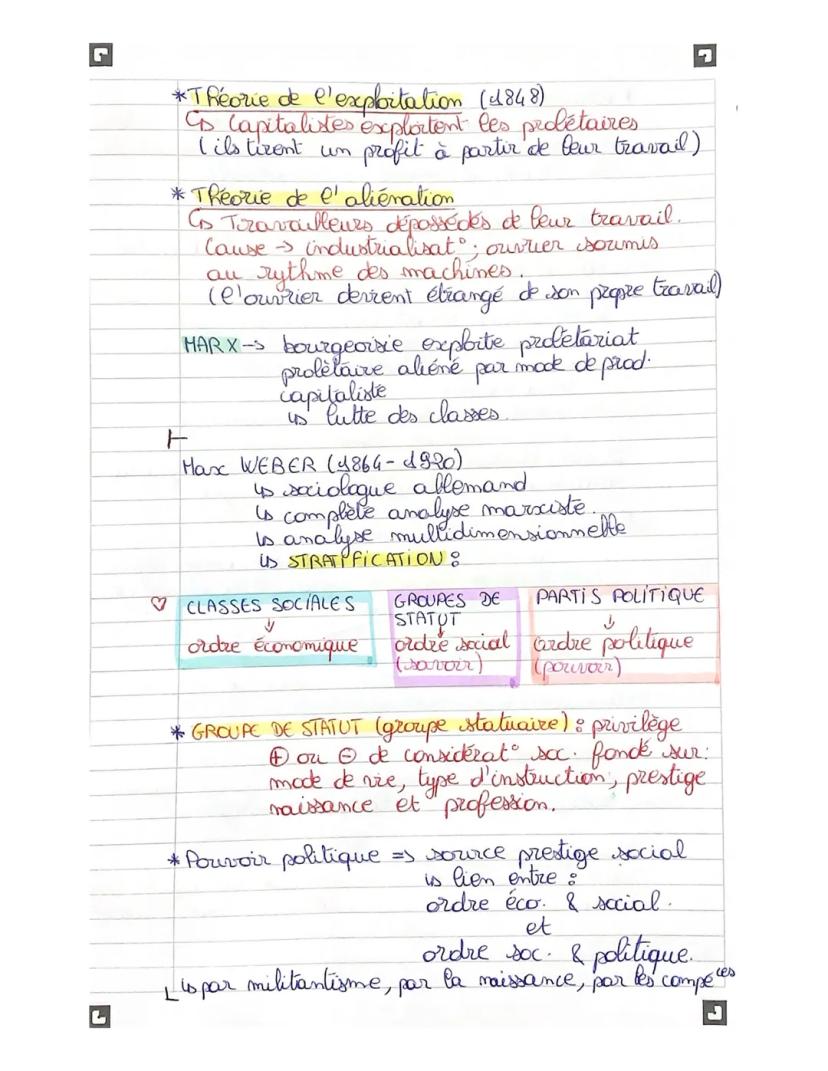 *Théorie de l'exploitation (1848)
↳ Capitalistes exploitent les prolétaires
(ils tirent un profit à partir de leur travail)
* Théorie de l'aliénation
↳ Travailleurs dépossédés de leur travail.
Cause → industrialisat°; ouvrier soumis
au rythme des machines.
(l'ouvrier devient étrangé de son propre travail)
MARX → bourgeoisie exploite prolétariat
prolètaire aliéné par mode de prod.
capitaliste
↳ lutte des classes.
Max WEBER (1864-1920)
↳ sociologue allemand
↳ complète analyse marxiste.
↳ analyse multidimensionnelle
↳ STRATIFICATION :
♡ CLASSES SOCIALES GROUPES DE PARTIS POLITIQUE
↓ STATUT ↓
ordre économique ordre social ordre politique
(savoir) (pouvoir)
* GROUPE DE STATUT (groupe statuaire) : privilège
⊕ ou ⊖ de considérat° soc. fondé sur:
mode de vie, type d'instruction, prestige
naissance et profession.
* Pouvoir politique => source prestige social
↳ lien entre :
ordre éco. & social.
et
ordre soc. & politique.
↳ par militantisme, par la naissance, par les compé^ces